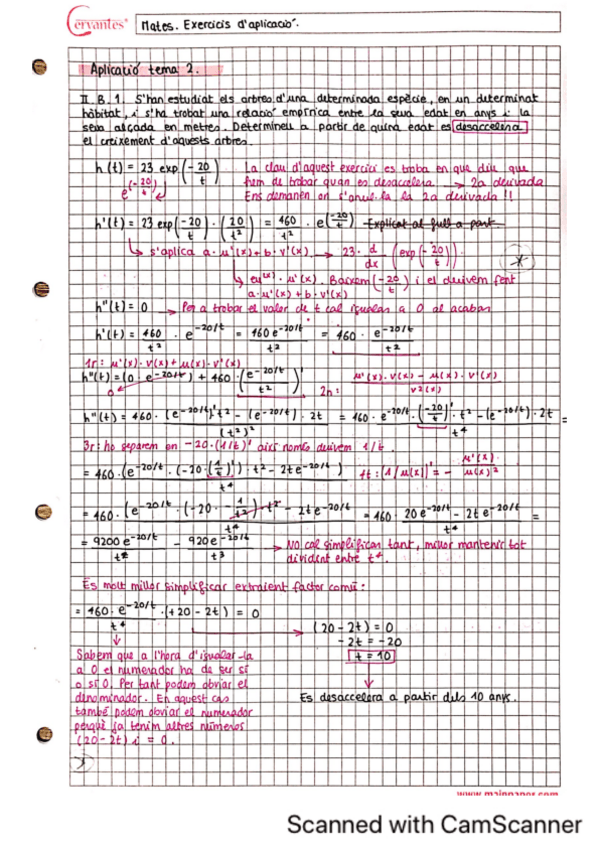 Cervantes® Mates. Exercicis d'aplicació.
Aplicació tema 2.
II. B. 1. S'han estudiat els arbres d'una determinada espècie, en un determinat
hàbitat, i s'ha trobat una relació empírica entre la seva edat en anys i la
seva alçada en metres. Determineu a partir de quina edat es desaccelera
el creixement d'aquests arbres.
h(t) = 23 exp(-20/t) La clau d'aquest exercici es troba en que diu que
e^(-20/t) hem de trobar quan es desaccelera → 2a derivada
Ens demanen on t'anul·la la 2a derivada!!
h'(t) = 23 exp(-20/t) · (20/t²) = 460/t² · e^(-20/t) Explicat al full a part
↳ s'aplica a·u'(x)+b·v'(x) → 23 · d/dx (exp(-20/t))
↳ e^u(x) · u'(x). Baixem (-20/t) i el derivem fent
a·u'(x)+b·v'(x)
h''(t) = 0 → Per a trobar el valor de t cal igualar a 0 al acabar
h'(t) = 460/t² · e^-20/t = 460 e^-20/t / t² = 460 · e^-20/t / t²
1r: u'(x)·v(x)+u(x)·v'(x)
h''(t) = (0 · e^-20/t) + 460 · (e^-20/t / t²)' 2n: u'(x)·v(x) - u(x)·v'(x) / v²(x)
0
h''(t) = 460 · (e^-20/t)' t² - (e^-20/t) · 2t / (t²)² = 460 · e^-20/t · (-20/t)' · t² - (e^-20/t) · 2t / t⁴ =
3r: ho separem en -20·(1/t)' així només derivem 1/t.
= 460 · (e^-20/t · (-20·(1/t)') · t² - 2te^-20/t) / t⁴ 4t: (1/u(x))' = - u'(x) / u(x)²
= 460 · (e^-20/t · (-20 · -1/t²) · t² - 2te^-20/t / t⁴ = 460 · 20e^-20/t - 2te^-20/t / t⁴ =
= 9200e^-20/t / t⁴ - 920e^-20/t / t³ → NO cal simplificar tant, millor mantenir tot
dividint entre t⁴.
És molt millor simplificar extraient factor comú:
= 460·e^-20/t / t⁴ · (+20 - 2t) = 0
(20 - 2t) = 0
-2t = -20
t = 10
Sabem que a l'hora d'igualar-la
a 0 el numerador ha de ser sí
o sí 0. Per tant podem obviar el
denominador. En aquest cas
també podem obviar el numerador
perquè ja tenim altres números
(20-2t) i = 0.
Es desaccelera a partir dels 10 anys.
www.mainpaper.com
Scanned with CamScanner